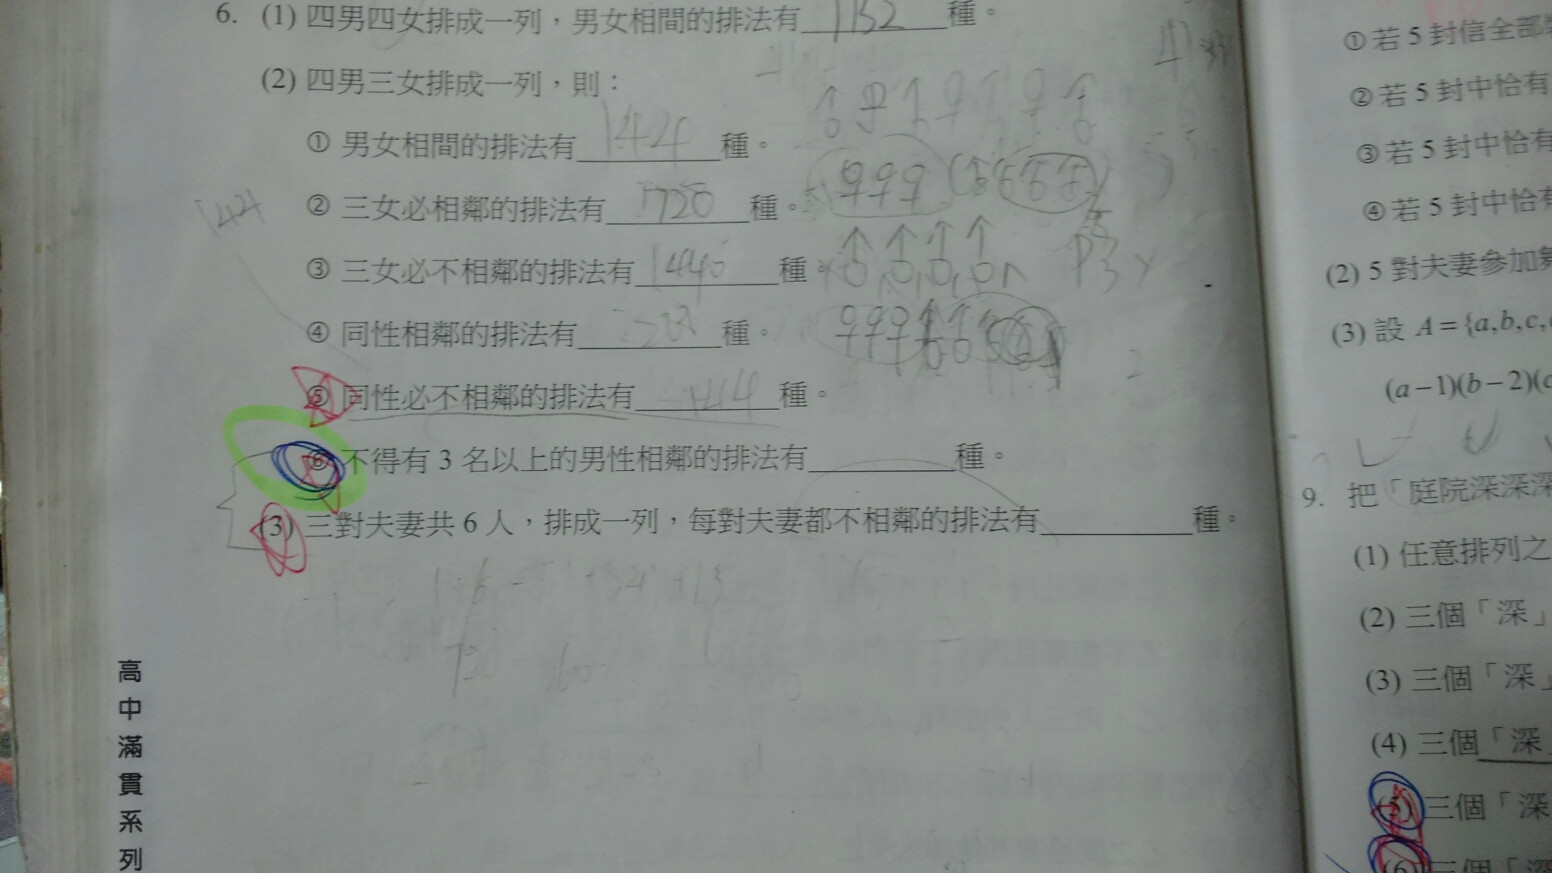 6. (1) 四男四女排成一列，男女相間的排法有 1152 種。
(2) 四男三女排成一列，則：
① 男女相間的排法有 144 種。
② 三女必相鄰的排法有 720 種。
③ 三女必不相鄰的排法有 1440 種。
④ 同性相鄰的排法有 288 種。
⑤ 同性必不相鄰的排法有 144 種。
⑥ 不得有 3 名以上的男性相鄰的排法有 種。
(3) 三對夫妻共 6 人，排成一列，每對夫妻都不相鄰的排法有 種。
144
720
高中滿貫系列
① 若 5 封信全部
② 若 5 封中恰有
③ 若 5 封中恰有
④ 若 5 封中恰有
(2) 5 對夫妻參加
(3) 設 A={a,b,c,
(a−1)(b−2)(c
9. 把「庭院深深深
(1) 任意排列之
(2) 三個「深」
(3) 三個「深」
(4) 三個「深」
(5) 三個「深
(6) 三個「深